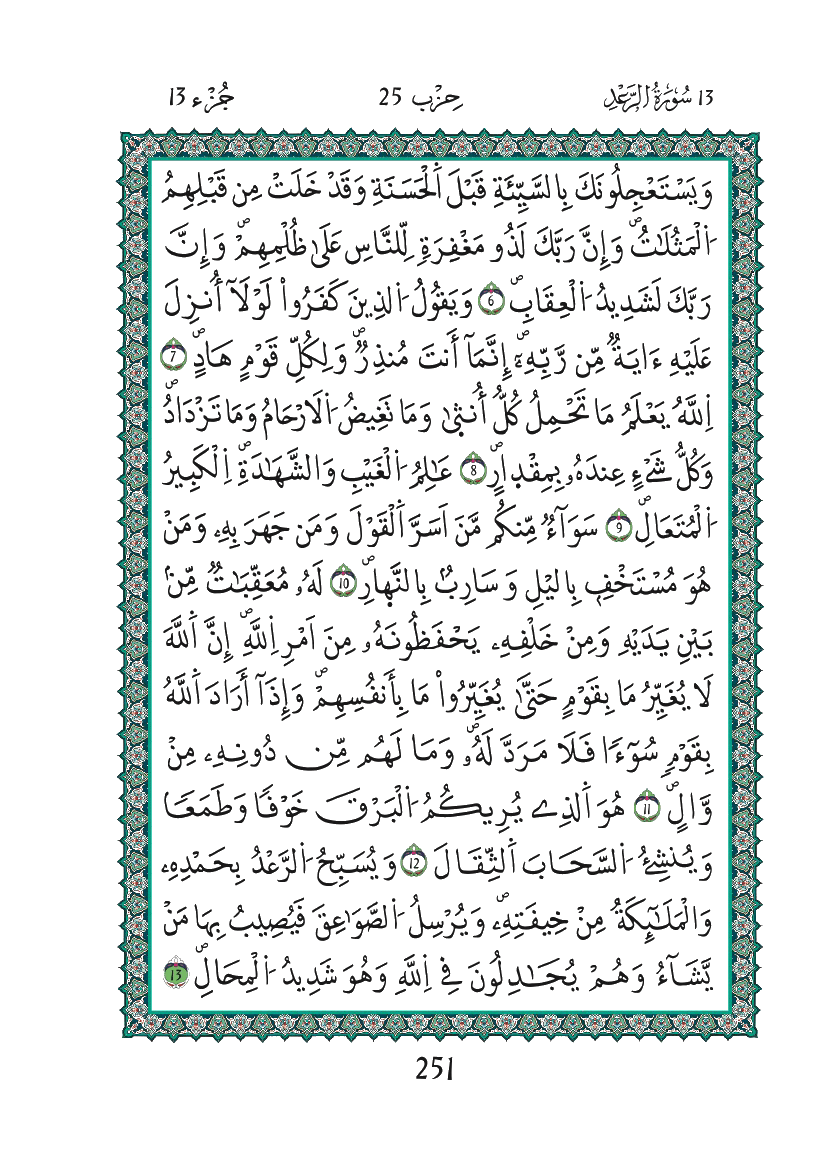 13 سُورَةُ الرَّعْدِ حِزْب 25 جُزْء 13
وَيَسْتَعْجِلُونَكَ بِالسَّيِّئَةِ قَبْلَ اَ۬لْحَسَنَةِ وَقَدْ خَلَتْ مِن قَبْلِهِمُ
اُ۬لْمَثُلَٰتُۖ وَإِنَّ رَبَّكَ لَذُو مَغْفِرَةٖ لِّلنَّاسِ عَلَىٰ ظُلْمِهِمْۖ وَإِنَّ
رَبَّكَ لَشَدِيدُ اُ۬لْعِقَابِۖ 6 وَيَقُولُ اُ۬لذِينَ كَفَرُواْ لَوْلَآ أُنزِلَ
عَلَيْهِ ءَايَةٞ مِّن رَّبِّهِۦٓۖ إِنَّمَآ أَنتَ مُنذِرٞۖ وَلِكُلِّ قَوْمٍ هَادٍۖ 7
اِ۬للَّهُ يَعْلَمُ مَا تَحْمِلُ كُلُّ أُنثۭيٰ وَمَا تَغِيضُ اُ۬لَارْحَامُ وَمَا تَزْدَادُۖ
وَكُلُّ شَےْءٍ عِندَهُۥ بِمِقْدٰ۪ارٍۖ 8 عَٰلِمُ اُ۬لْغَيْبِ وَالشَّهَٰدَةِۖ اِ۬لْكَبِيرُ
اُ۬لْمُتَعَالِۖ 9 سَوَآءٞ مِّنكُم مَّنَ اَسَرَّ اَ۬لْقَوْلَ وَمَن جَهَرَ بِهِۦ وَمَنْ
هُوَ مُسْتَخْفِۢ بِاليْلِ وَسَارِبُۢ بِالنَّه۪ارِۖ 10 لَهُۥ مُعَقِّبَٰتٞ مِّنۢ
بَيْنِ يَدَيْهِ وَمِنْ خَلْفِهِۦ يَحْفَظُونَهُۥ مِنَ اَمْرِ اِ۬للَّهِۖ إِنَّ اَ۬للَّهَ
لَا يُغَيِّرُ مَا بِقَوْمٍ حَتَّىٰ يُغَيِّرُواْ مَا بِأَنفُسِهِمْۖ وَإِذَآ أَرَادَ اَ۬للَّهُ
بِقَوْمٖ سُوٓءٗا فَلَا مَرَدَّ لَهُۥۖ وَمَا لَهُم مِّن دُونِهِۦ مِنْ
وَّالٍۖ 11 هُوَ اَ۬لذِے يُرِيكُمُ اُ۬لْبَرْقَ خَوْفٗا وَطَمَعٗا
وَيُنشِۓُ اُ۬لسَّحَابَ اَ۬لثِّقَالَ 12 وَيُسَبِّحُ اُ۬لرَّعْدُ بِحَمْدِهِۦ
وَالْمَلَٰٓئِكَةُ مِنْ خِيفَتِهِۦۖ وَيُرْسِلُ اُ۬لصَّوَٰعِقَ فَيُصِيبُ بِهَا مَنْ
يَّشَآءُ وَهُمْ يُجَٰدِلُونَ فِے اِ۬للَّهِ وَهُوَ شَدِيدُ اُ۬لْمِحَالِۖ 13
251